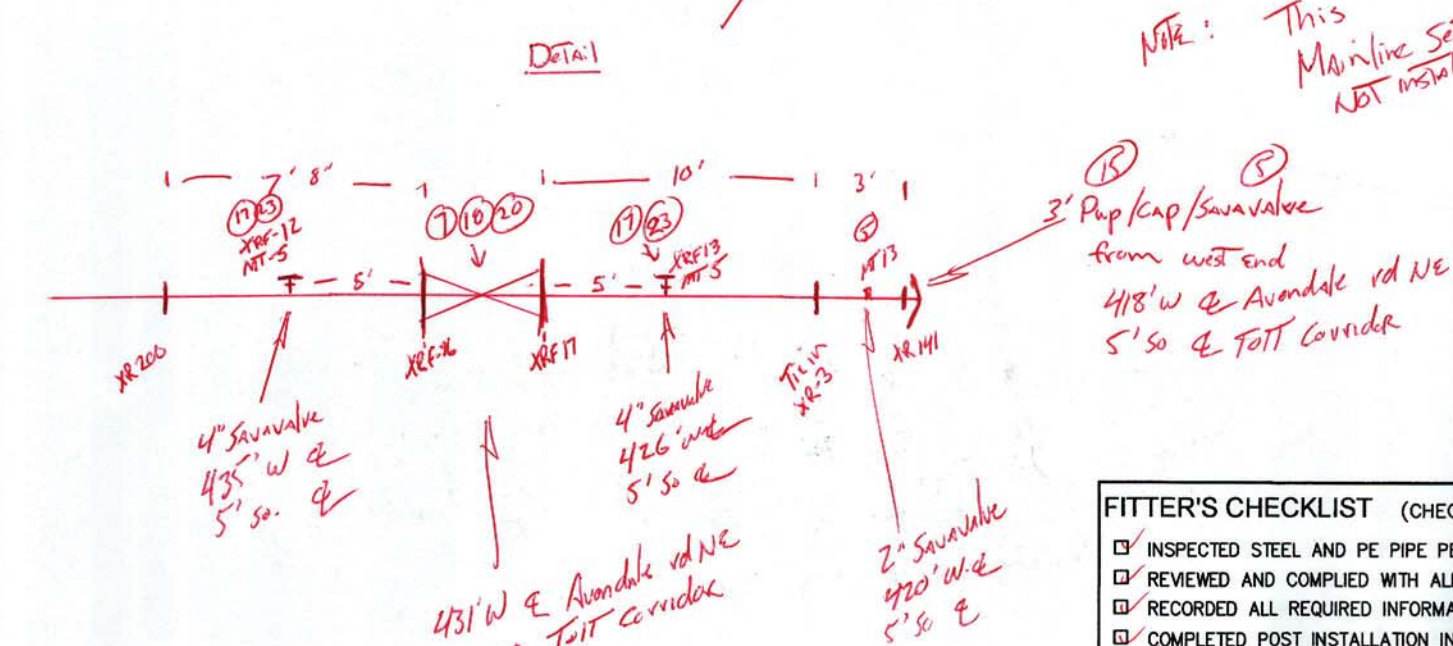 Detail
NOTE: This
Mainline Se
NOT instal
7' 8"
10'
3'
17 23
XRF-12
MT-5
5'
7 18 20
5'
17 23
XRF13
MT 5
5
MT13
XR200
XRF-16
XRF17
Tie in
XR-3
XR 141
15 5
3' Pup/Cap/Savavalve
from west End
418' W ℄ Avondale rd NE
5' So ℄ TOTT Corridor
4" Savavalve
435' W ℄
5' So. ℄
431' W ℄ Avondale rd NE
TOIT Corridor
4" Savavalve
426' west
5' So ℄
2" Savavalve
420' W. ℄
5' So ℄
FITTER'S CHECKLIST (CHEC
INSPECTED STEEL AND PE PIPE PE
REVIEWED AND COMPLIED WITH ALL
RECORDED ALL REQUIRED INFORMA
COMPLETED POST INSTALLATION IN